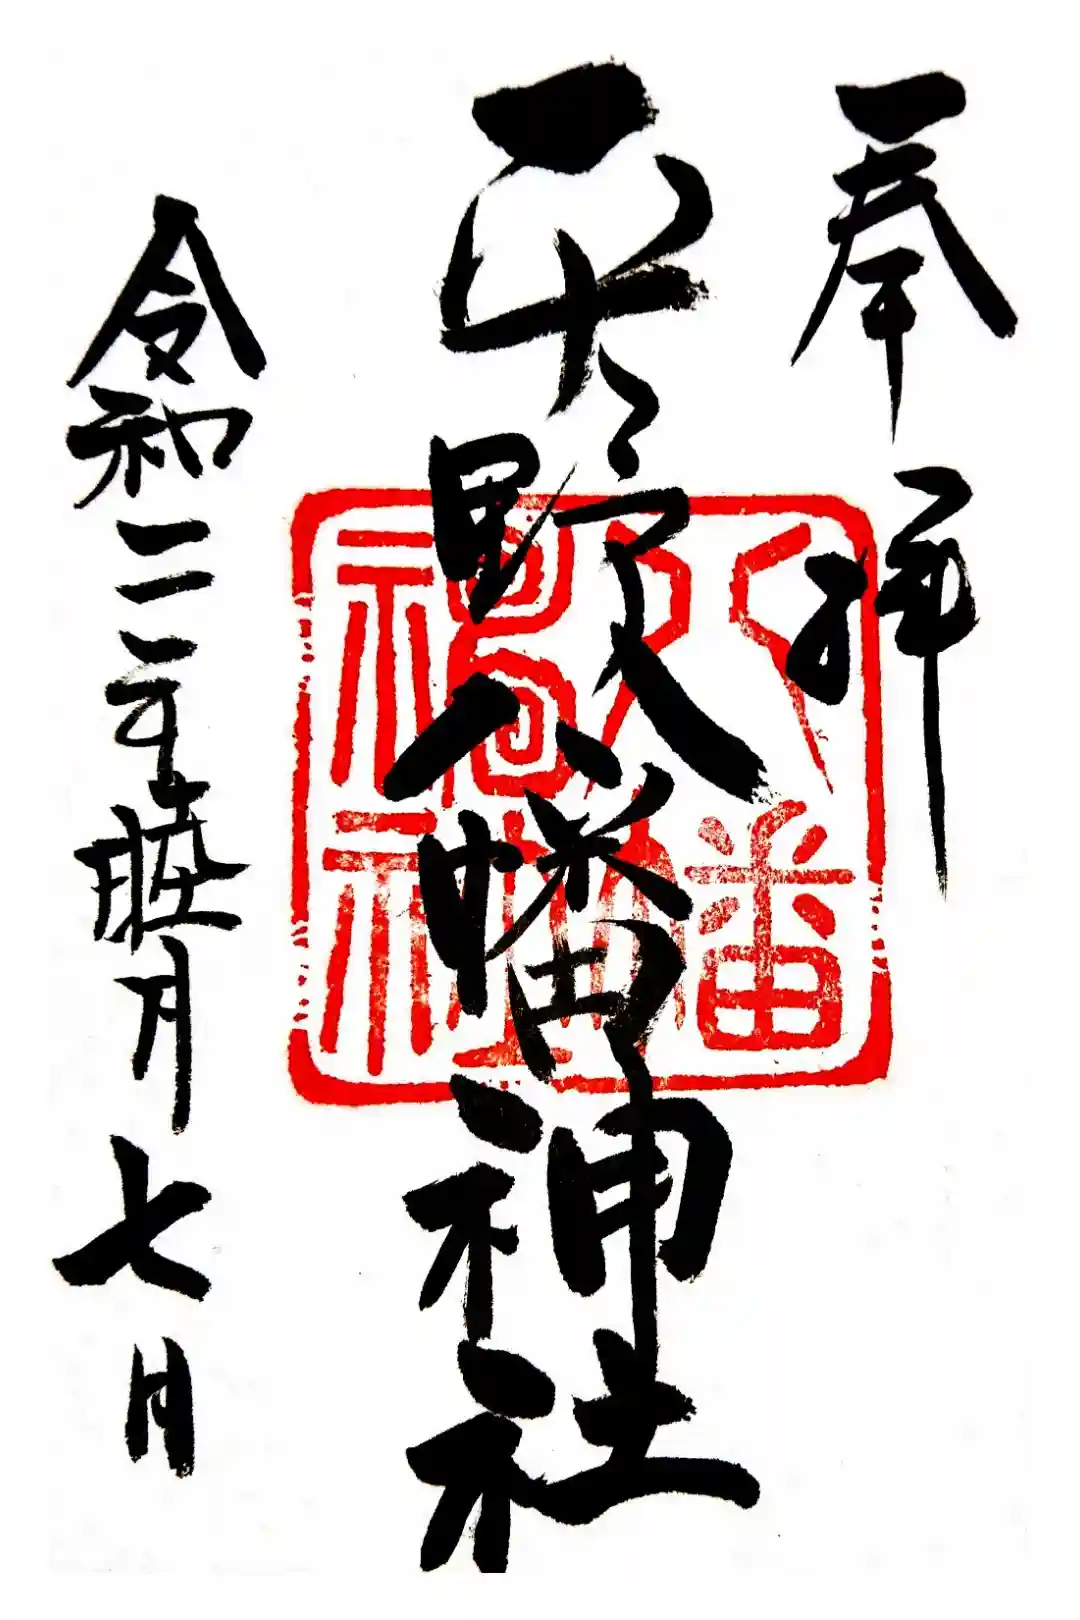 奉拝
平野八幡神社
令和二年睦月七日
八幡
神社